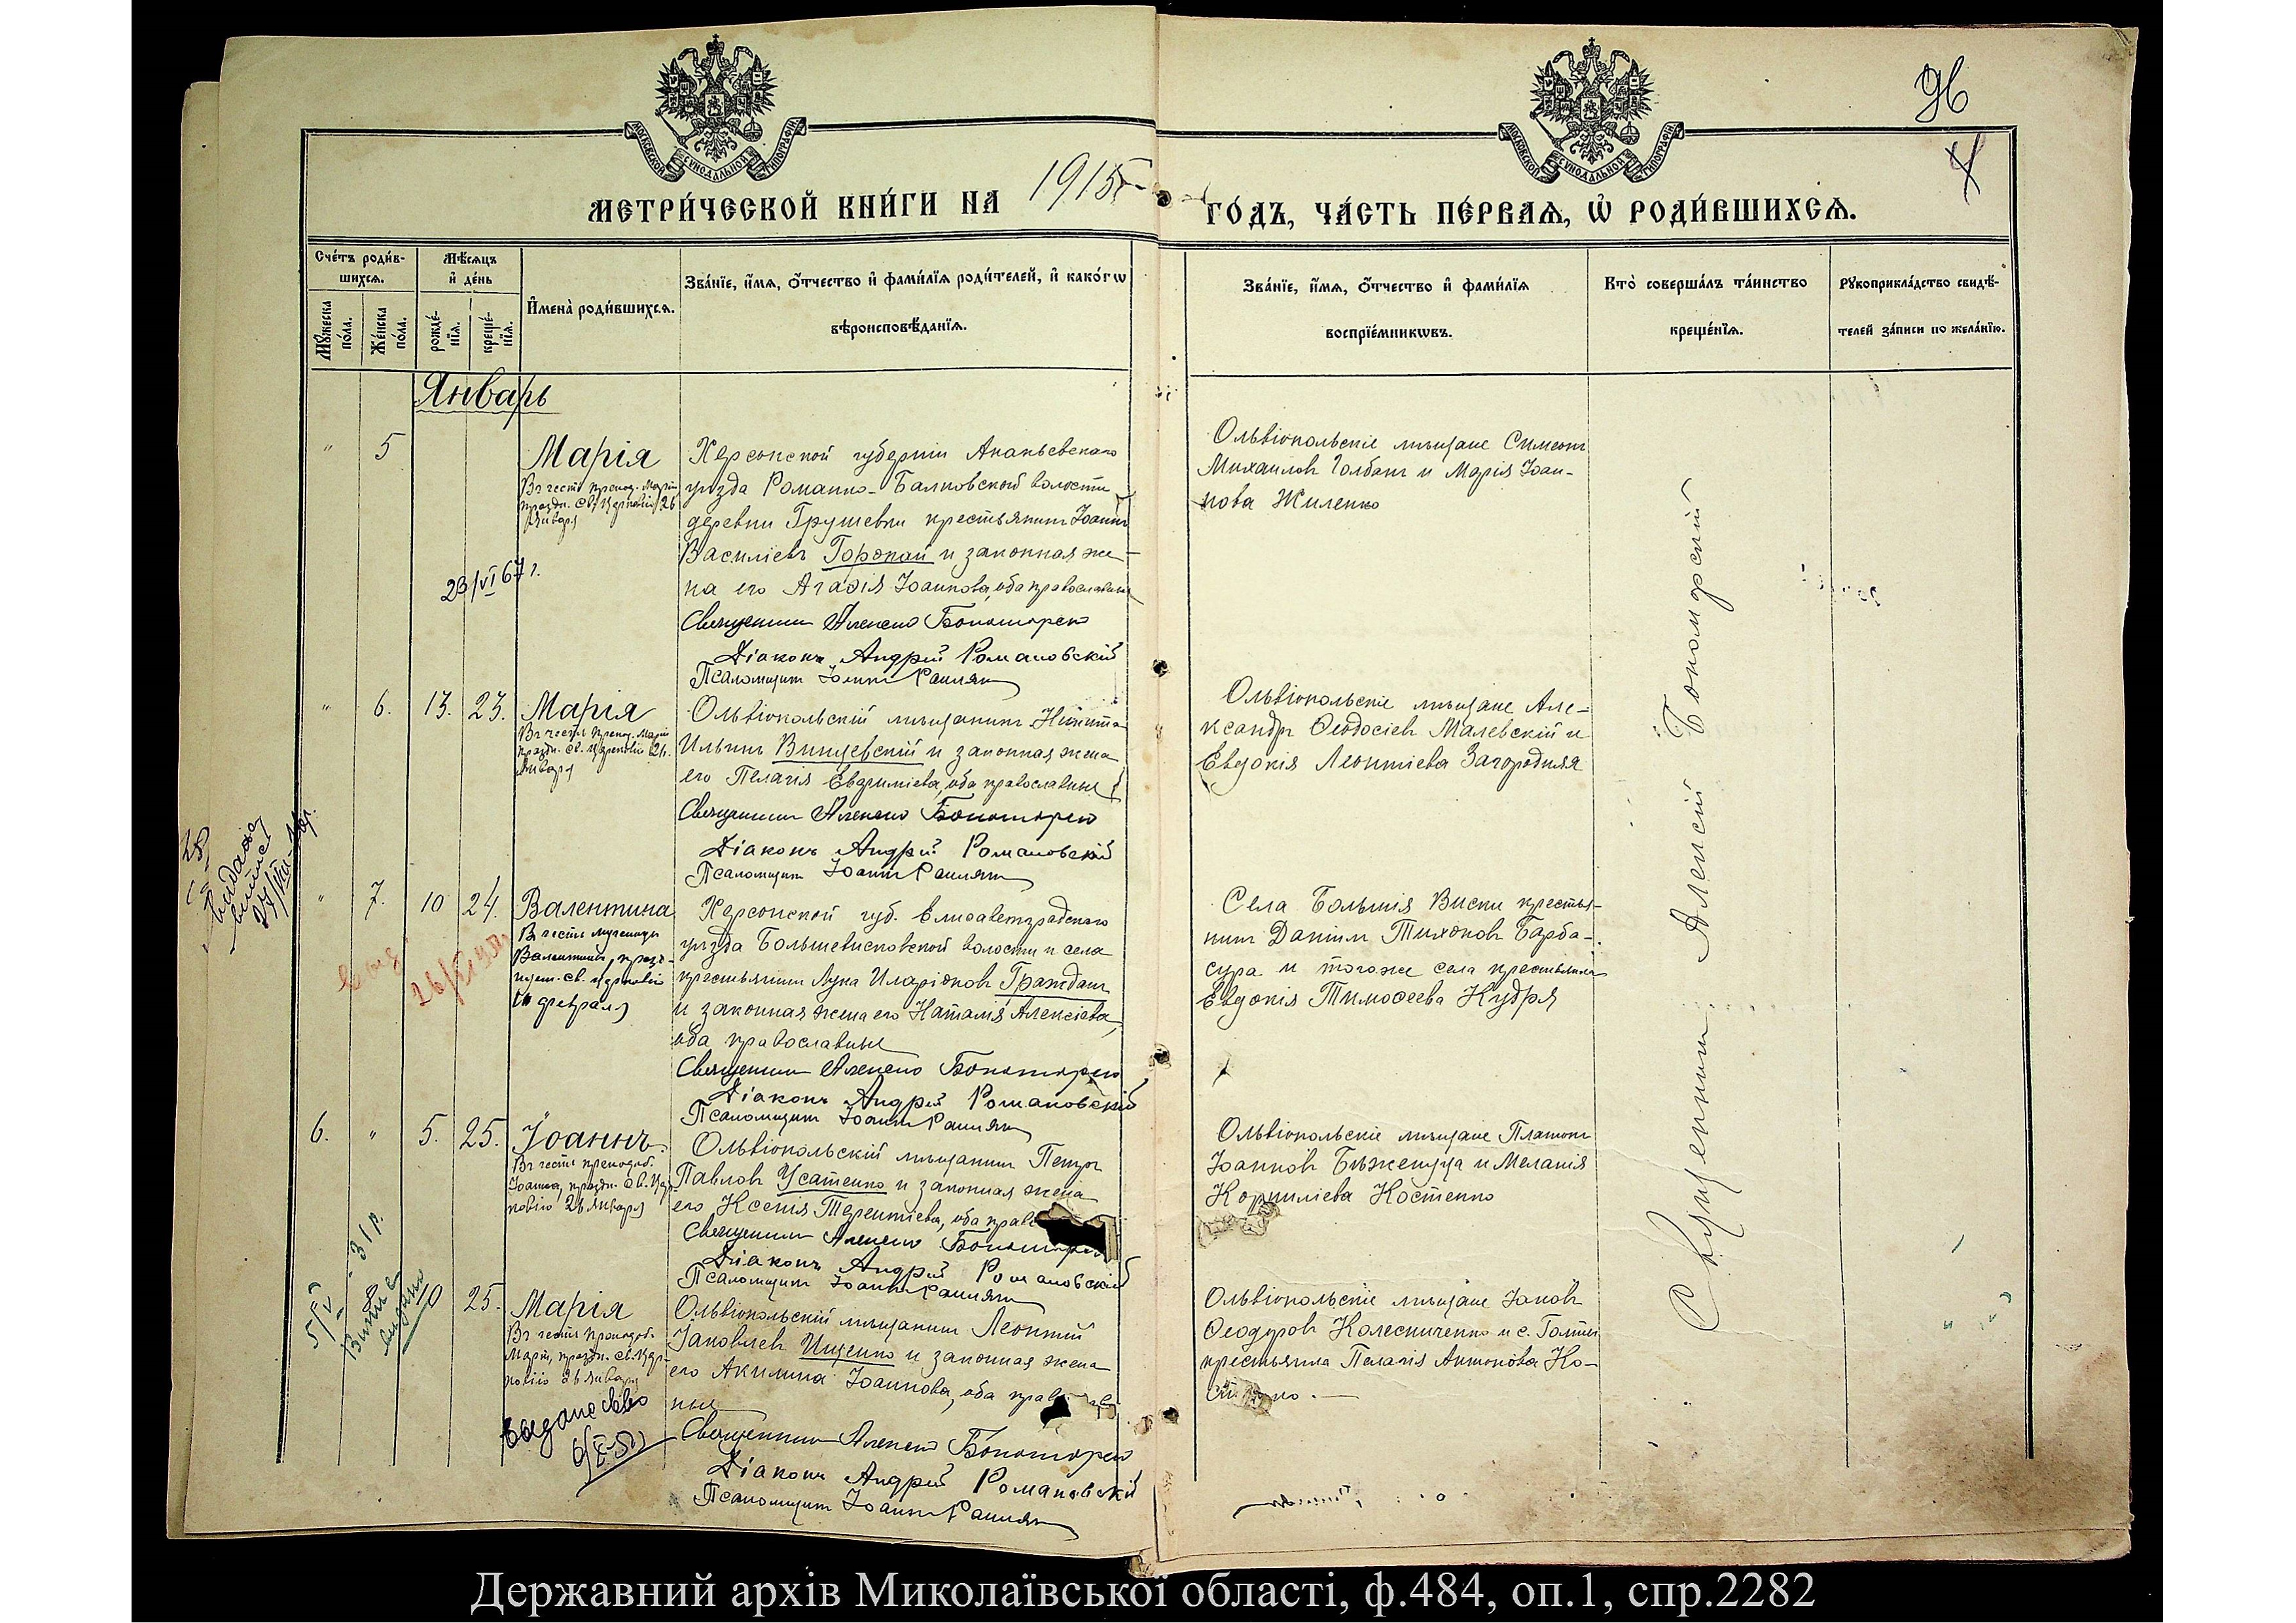 96
4
МОСКОВСКОЙ СѴНОДАЛЬНОЙ ТИПОГРАФІИ
МОСКОВСКОЙ СѴНОДАЛЬНОЙ ТИПОГРАФІИ
МЕТРИ́ЧЕСКОЙ КНИ́ГИ НА 1915
ГО́ДЪ, ЧА́СТЬ ПЕ́РВАѦ, Ѡ҆ РОДИ́ВШИХСѦ.
Сче́тъ роди́в-
шихсѧ.
Мꙋ́жеска по́ла.
Же́нска по́ла.
Мѣ́сѧцъ
и҆ де́нь
рожде́-
нїѧ.
креще́-
нїѧ.
И҆мена̀ роди́вшихсѧ.
Зва́нїе, и҆́мѧ, ѻ҆́тчество и҆ фами́лїѧ роди́телей, и҆ како́гѡ
вѣроисповѣ́данїѧ.
Зва́нїе, и҆́мѧ, ѻ҆́тчество и҆ фами́лїѧ
воспрїе́мникѡвъ.
Кто̀ соверша́лъ та́инство
креще́нїѧ.
Рꙋкоприкла́дство свидѣ́-
телей за́писи по жела́нїю.
Январь
" 5
Марія
Въ честь препод. Маріи
праздн. св. Церковію 26
Января
23/VI 67 г.
Херсонской губерніи Ананьевскаго
уѣзда Романко-Балковской волости
деревни Грушевки крестьянинъ Іоаннъ
Василіевъ Горопай и законная же-
на его Агаѳія Іоаннова, оба православные
Священникъ Алексій
Діаконъ Андрей Романовскій
Псаломщикъ Іоаннъ
Ольвіопольскіе мѣщане Симеонъ
Михаиловъ Голбанъ и Марія Іоан-
нова Жиленко
" 6. 13. 23. Марія
Въ честь препод. Маріи
праздн. св. Церковію 26.
Января
Ольвіопольскій мѣщанинъ Никита
Ильинъ Вишевскій и законная жена
его Пелагія Евѳиміева, оба православные
Священникъ Алексій
Діаконъ Андрей Романовскій
Псаломщикъ Іоаннъ
Ольвіопольскіе мѣщане Але-
ксандръ Ѳеодосіевъ Малевскій и
Евдокія Леонтіева Загородняя
" 7. 10 24. Валентина
Въ честь мученицы
Валентины, празд-
нуем. св. церковію
10 февраля
26/
27/VIII
Херсонской губ. Елисаветградскаго
уѣзда Большевисковской волости и села
крестьянинъ Лука Иларіоновъ Гражданъ
и законная жена его Наталія Алексіева,
оба православные
Священникъ Алексій
Діаконъ Андрей Романовскій
Псаломщикъ Іоаннъ
Села Большія Виски крестья-
нинъ Даніилъ Тихоновъ Барба-
сура и тогоже села крестьянка
Евдокія Тимоѳеева Кудря
6. " 5. 25. Іоаннъ
Въ честь преподоб.
Іоанна, праздн. св. Цер-
ковію 26 Января
Ольвіопольскій мѣщанинъ Петръ
Павловъ Усатенко и законная жена
его Ксенія Терентіева, оба
Священникъ Алексій
Діаконъ Андрей Романовскій
Псаломщикъ Іоаннъ
Ольвіопольскіе мѣщане Платонъ
Іоанновъ Бѣженуца и Меланія
Корниліева Костенко
8 10 25. Марія
Въ честь Преподоб.
Маріи, праздн. св. Цер-
ковію 26 Января
5/V
31 р.
Витяг
видано
выдано св-во
Ольвіопольскій мѣщанинъ Леонтій
Іаковлевъ Ищенко и законная жена
его Акилина Іоаннова, оба
ные
Священникъ Алексій
Діаконъ Андрей Романовскій
Псаломщикъ Іоаннъ
Ольвіопольскіе мѣщане Іаковъ
Ѳеодоровъ Колесниченко и с. Голты
крестьянка Пелагія Антонова Ко-
Священникъ Алексій
Державний архів Миколаївської області, ф.484, оп.1, спр.2282